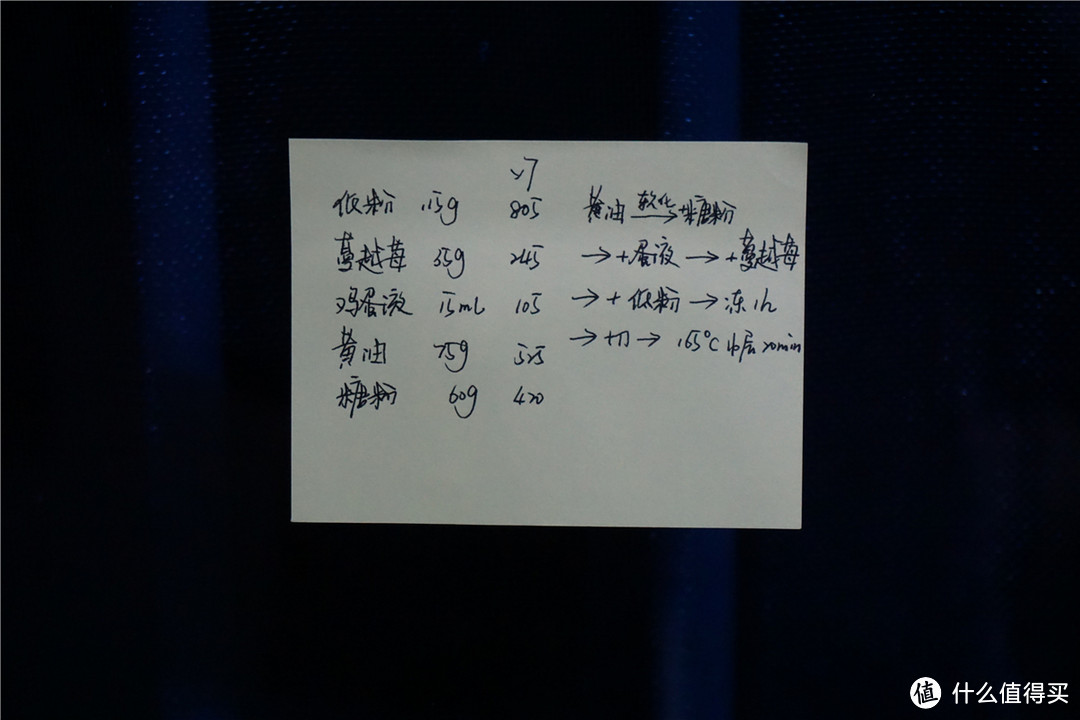 ×7
低粉 115g 805
蔓越莓 35g 245
鸡蛋液 15mL 105
黄油 75g 525
糖粉 60g 420
黄油 软化→ +糖粉
→ +蛋液 → +蔓越莓
→ + 低粉 → 冻 1h
→ 切 → 165°C 中层 20min
值 什么值得买